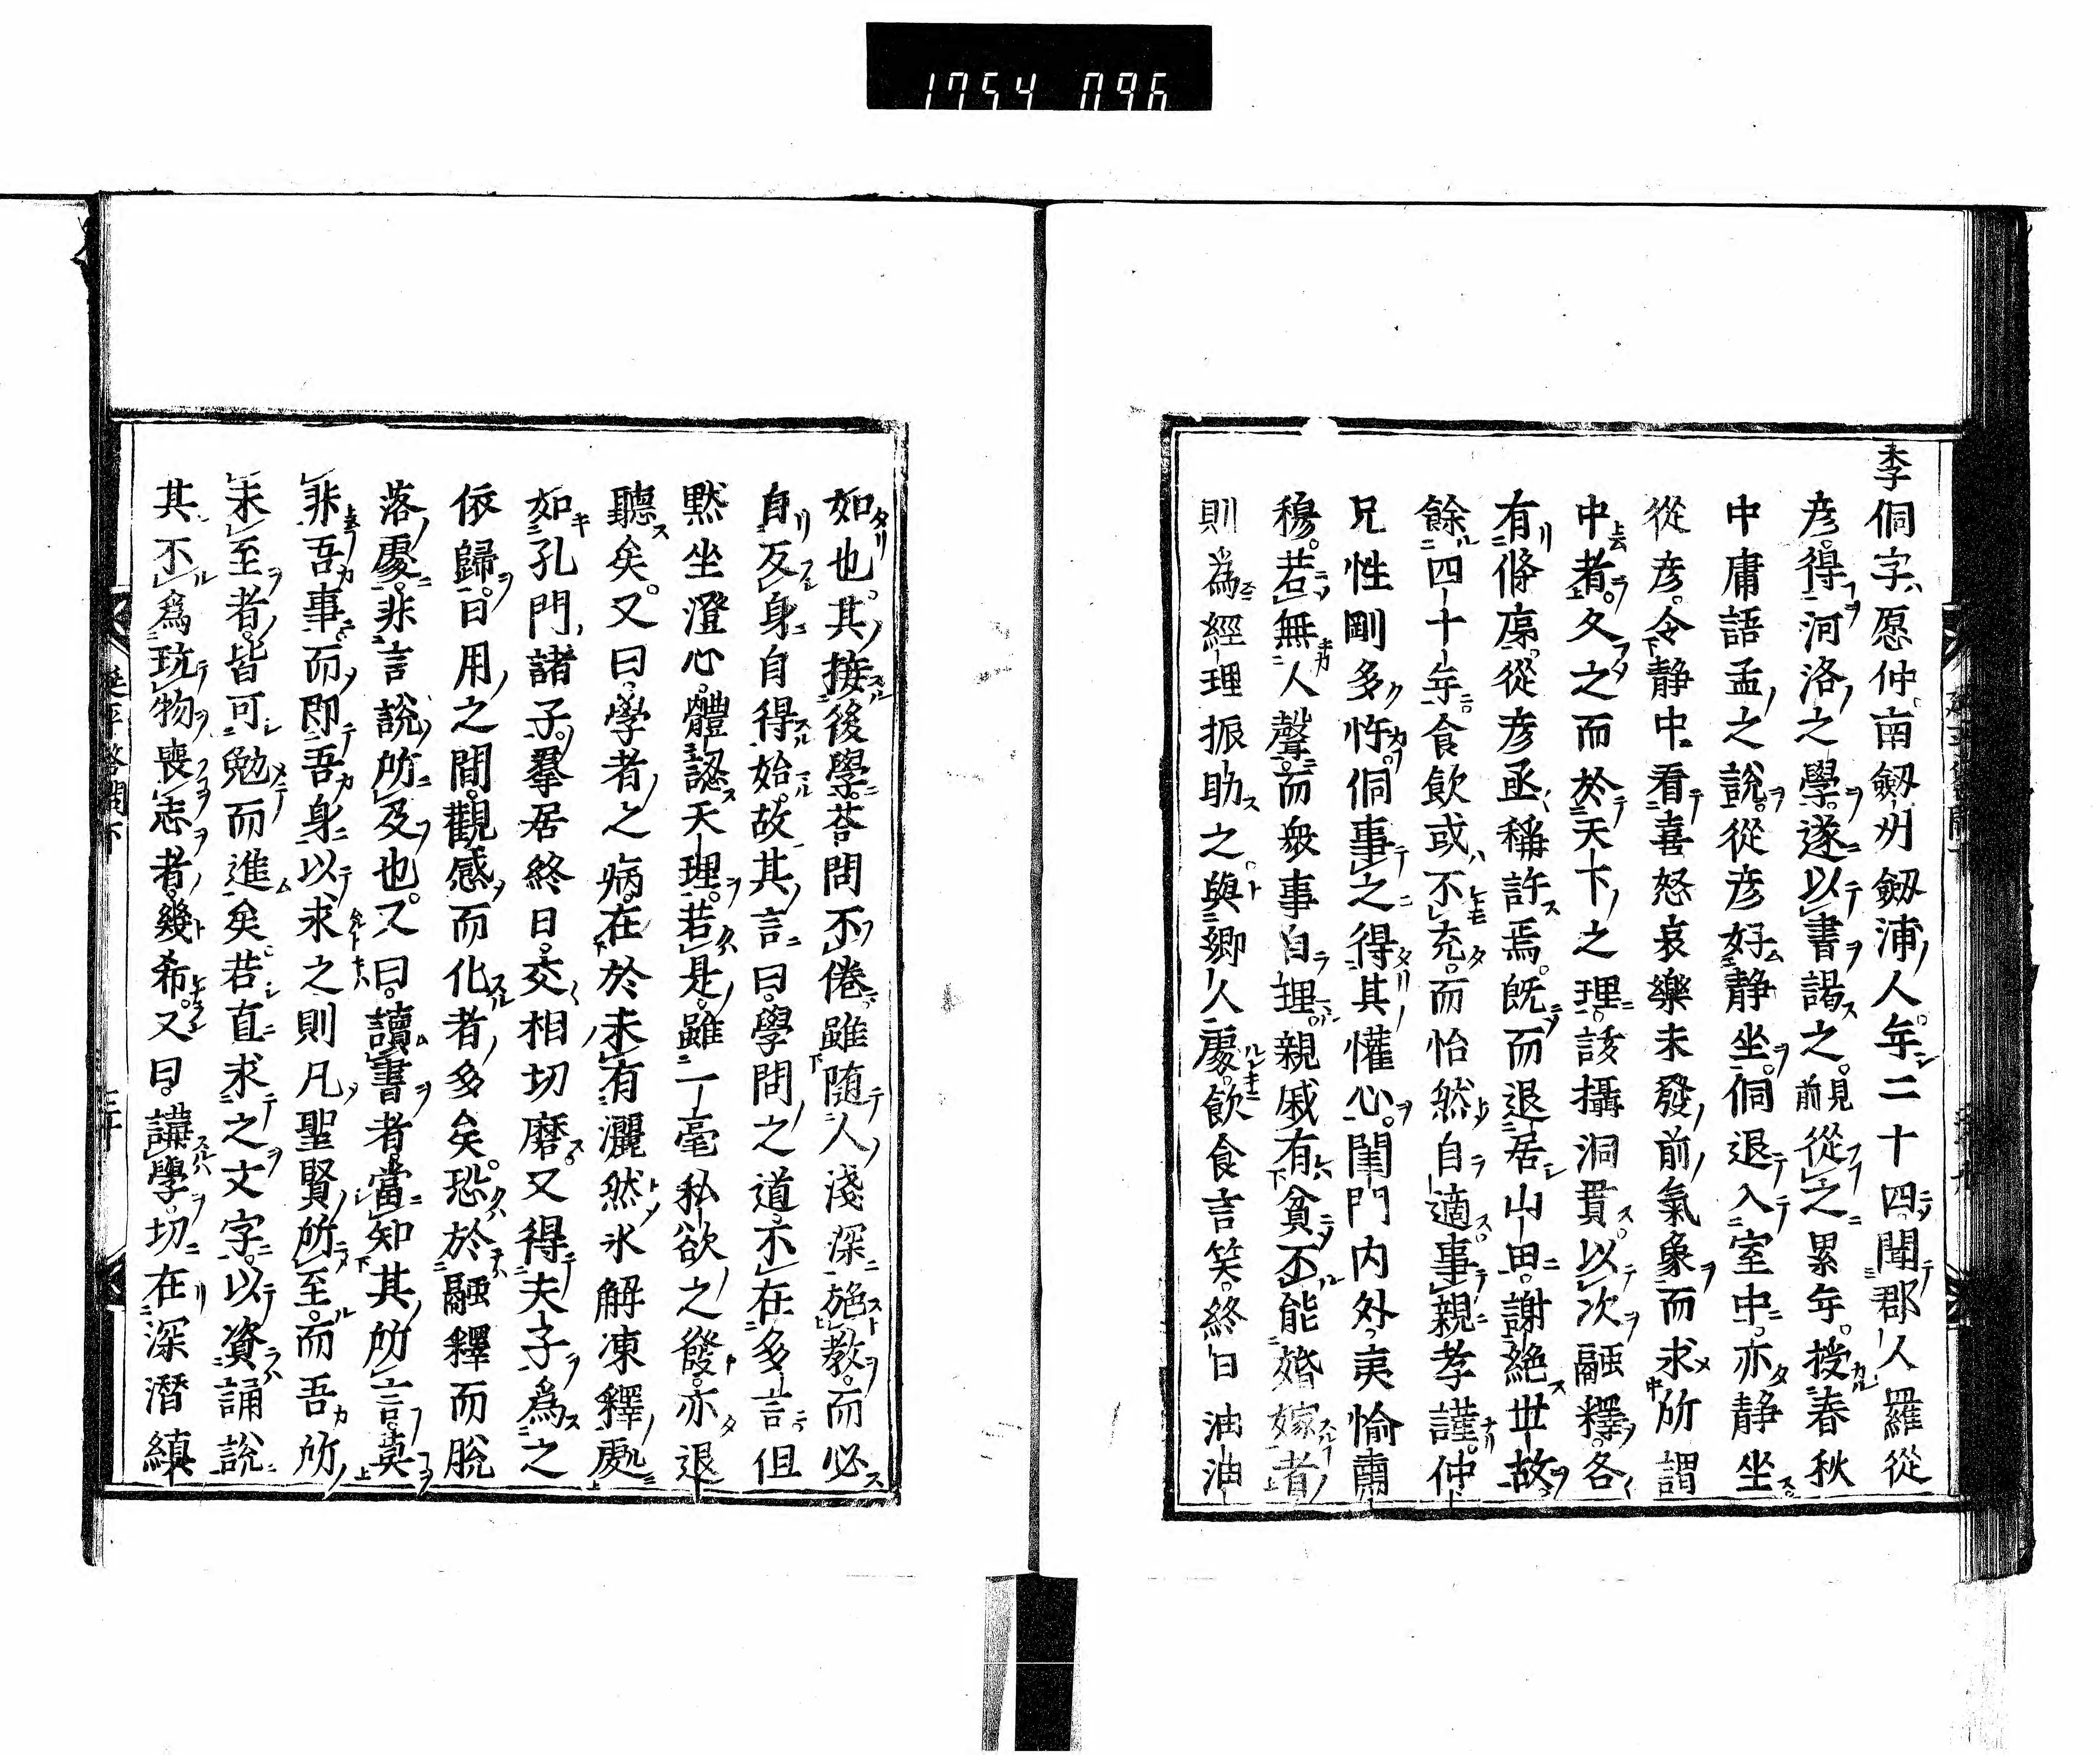 1754 096
李侗字愿仲南劔州劔浦人年二十四聞郡人羅從
彦得河洛之學遂以書謁之前見從之累年授春秋
中庸語孟之說從彦好静坐侗退入室中亦静坐
從彦令静中看喜怒哀樂未發前氣象而求所謂
中者久之而於天下之理該攝洞貫以次融釋各
有條序從彦亟稱許焉既而退居山田謝絶世故
餘四十年食飲或不充而怡然自適事親孝謹仲
兄性剛多忤侗事之得其懽心閨門内外夷愉肅
穆若無人聲而衆事自理親戚有貧不能婚嫁者
則為經理振助之與鄉人處飲食言笑終日油油
如也其接後學荅問不倦雖随人淺深施教而必
自反身自得始故其言曰學問之道不在多言但
黙坐澄心體認天理若是雖一毫私欲之發亦退
聽矣又曰學者之病在於未有灑然氷解凍釋處
如孔門諸子羣居終日交相切磨又得夫子為之
依歸日用之間觀感而化者多矣恐於融釋而脱
落處非言說所及也又曰讀書者當知其所言莫
非吾事而即吾身以求之則凡聖賢所至而吾所
未至者皆可勉而進矣若直求之文字以資誦說
其不為玩物喪志者幾希又曰講學切在深潛縝
延平答問下
三十